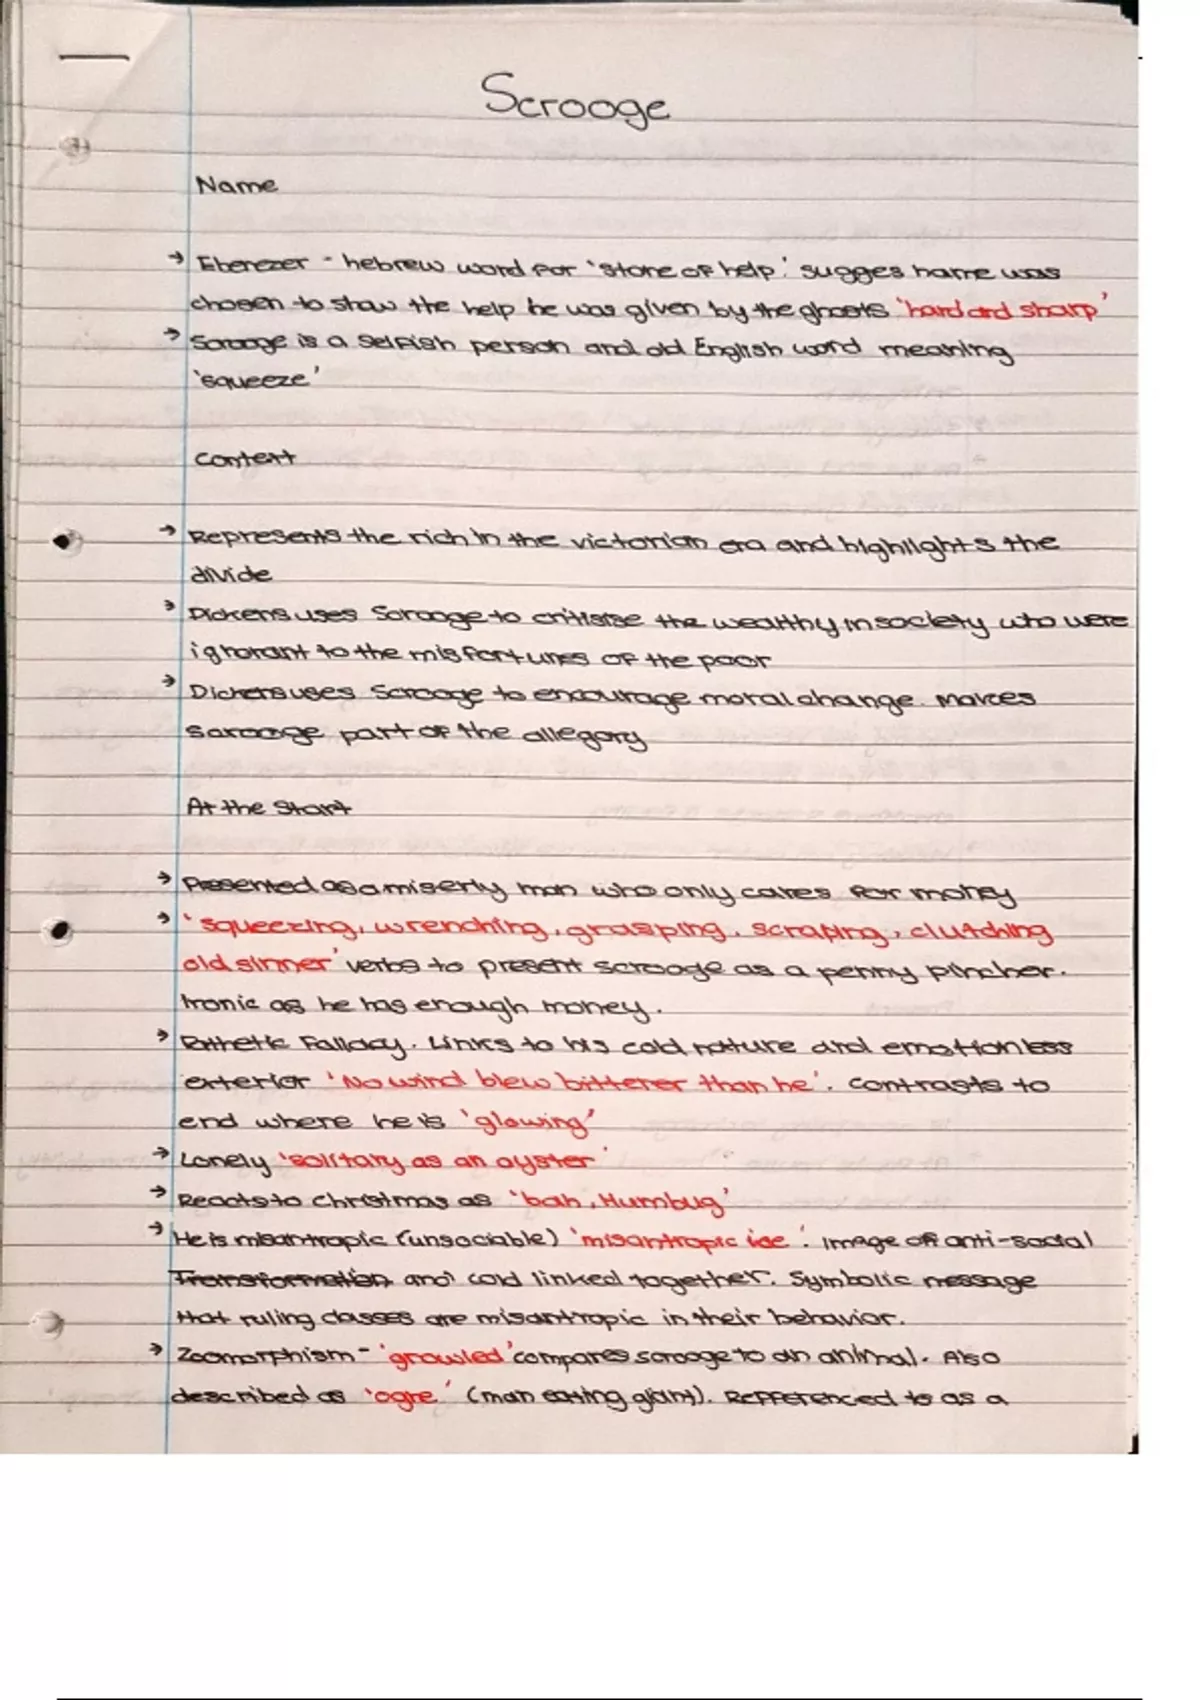 Scrooge
Name
→ Ebenezer - hebrew word for 'stone of help.' sugges name was
chosen to show the help he was given by the ghosts 'hard and sharp'
→ Scrooge is a selfish person and old English word meaning
'squeeze'
Context
→ Represents the rich in the victorian era and highlights the
divide
→ Dickens uses Scrooge to critisise the wealthy in society who were
ignorant to the misfortunes of the poor
→ Dickens uses Scrooge to encourage moral change. Makes
Scrooge part of the allegory
At the Start
→ Presented as a miserly man who only cares for money
→ 'squeezing, wrenching, grasping, scraping, clutching
old sinner' verbs to present scrooge as a penny pincher.
Ironic as he has enough money.
→ Pathetic Fallacy. Links to his cold nature and emotionless
exterior 'No wind blew bitterer than he'. contrasts to
end where he is 'glowing'
→ Lonely 'solitary as an oyster'
→ Reacts to Christmas as 'bah, Humbug'
→ He is misantropic (unsociable) 'misantropic ice'. Image of anti-social
Transformation and cold linked together. Symbolic message
that ruling classes are misantropic in their behavior.
→ Zoomorphism - 'growled' compares scrooge to an animal. Also
described as 'ogre' (man eating giant). Refferenced to as a